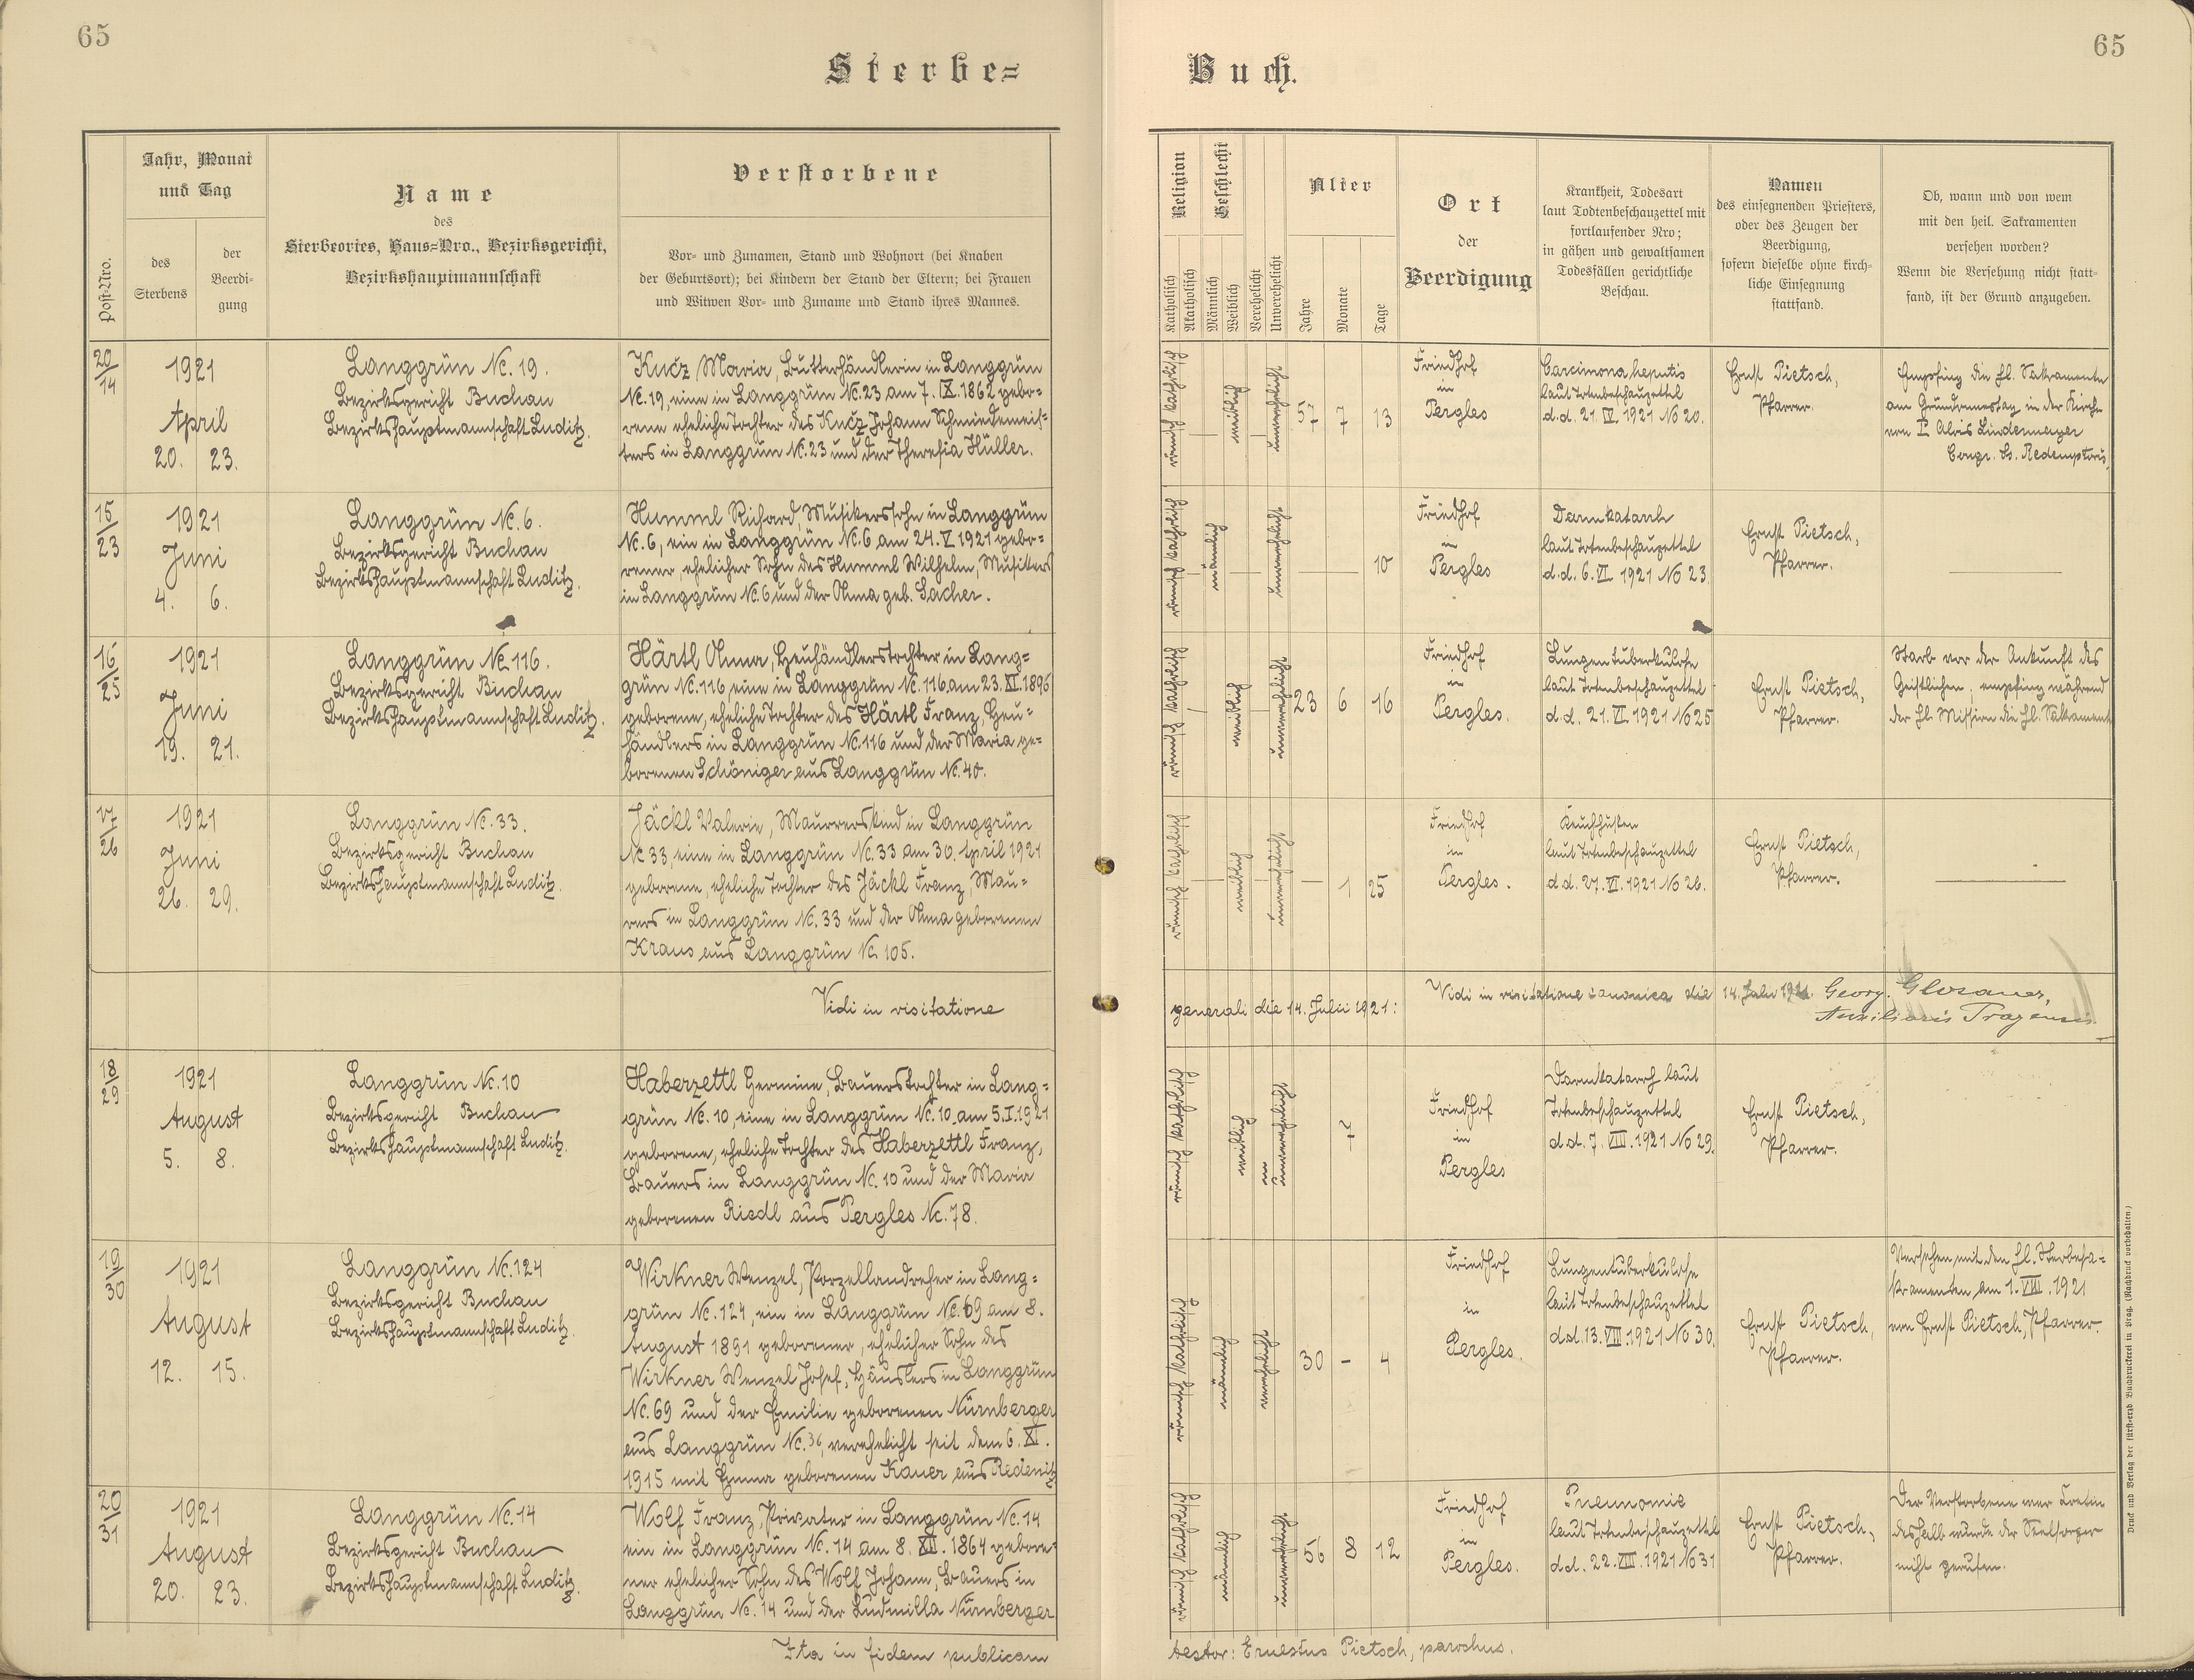 65
65
Sterbe=
Buch.
Post=Nro.
Jahr, Monat
und Tag
des
Sterbens
der
Beerdi-
gung
Name
des
Sterbeortes, Haus=Nro., Bezirksgericht,
Bezirkshauptmannschaft
Verstorbene
Vor- und Zunamen, Stand und Wohnort (bei Knaben
der Geburtsort); bei Kindern der Stand der Eltern; bei Frauen
und Witwen Vor- und Zuname und Stand ihres Mannes.
Religion
Katholisch
Akatholisch
Geschlecht
Männlich
Weiblich
Verehelicht
Unverehelicht
Alter
Jahre
Monate
Tage
Ort
der
Beerdigung
Krankheit, Todesart
laut Todtenbeschauzettel mit
fortlaufender Nro;
in gähen und gewaltsamen
Todesfällen gerichtliche
Beschau.
Namen
des einsegnenden Priesters,
oder des Zeugen der
Beerdigung,
sofern dieselbe ohne kirch-
liche Einsegnung
stattfand.
Ob, wann und von wem
mit den heil. Sakramenten
versehen worden?
Wenn die Versehung nicht statt-
fand, ist der Grund anzugeben.
20/14
1921
April
20. 23.
Langgrün Nc. 19.
Bezirksgericht Buchau
Bezirkshauptmannschaft Luditz.
Kucz Maria, Butterhändlerin in Langgrün
Nc. 19, eine in Langgrün Nc. 23 am 7. IX. 1862 gebo=
rene eheliche Tochter des Kucz Johann Schmiedemeis=
ters in Langgrün Nc. 23 und der Theresia Hüller.
57 7 13
Friedhof
in
Pergles
Carcinoma hepatis
laut Totenbeschauzettel
d.d. 21. IV. 1921 No 20.
Ernst Pietsch,
Pfarrer.
Empfing die hl. Sakramente
am Gründonnerstag in der Kirche
von P. Alois Lindermayer
Congr. Ss. Redemptoris.
15/23
1921
Juni
4. 6.
Langgrün Nc. 6.
Bezirksgericht Buchau
Bezirkshauptmannschaft Luditz.
Humml Richard, Musikerssohn in Langgrün
Nc. 6, ein in Langgrün Nc. 6 am 24. V. 1921 gebo=
rener, ehelicher Sohn des Humml Wilhelm, Musikers
in Langgrün Nc. 6 und der Anna geb. Lacher.
10
Friedhof
in
Pergles
Darmkatarrh
laut Totenbeschauzettel
d.d. 6. VI. 1921 No 23.
Ernst Pietsch,
Pfarrer.
16/25
1921
Juni
19. 21.
Langgrün Nc 116.
Bezirksgericht Buchau
Bezirkshauptmannschaft Luditz.
Härtl Anna, Heuhändlerstochter in Lang=
grün Nc. 116, eine in Langgrün Nc. 116 am 23. XI. 1896
geborene, eheliche Tochter des Härtl Franz, Heu=
händlers in Langgrün Nc. 116 und der Maria ge=
borenen Schöniger aus Langgrün Nc. 40.
23 6 16
Friedhof
in
Pergles.
Lungentuberkulose
laut Totenbeschauzettel
d.d. 21. VI. 1921 No 25
Ernst Pietsch,
Pfarrer.
Starb vor der Ankunft des
Geistlichen, empfing während
der hl. Mission die hl. Sakrament
17/26
1921
Juni
26. 29.
Langgrün Nc. 33.
Bezirksgericht Buchau
Bezirkshauptmannschaft Luditz.
Jäckl Valerie, Maurerskind in Langgrün
Nc 33, eine in Langgrün Nc. 33 am 30. April 1921
geborene, eheliche Tochter des Jäckl Franz, Mau=
rers in Langgrün Nc. 33 und der Anna geborenen
Kraus aus Langgrün Nc. 105.
1 25
Friedhof
in
Pergles.
Keuchhusten
laut Totenbeschauzettel
d.d. 27. VI. 1921 No 26.
Ernst Pietsch,
Pfarrer.
Vidi in visitatione
generali die 14. Julii 1921:
Vidi in visitatione canonica die 14. Julii 1921. Georg. Glosauer,
Auxiliaris Pragensis
18/29
1921
August
5. 8.
Langgrün Nc. 10
Bezirksgericht Buchau
Bezirkshauptmannschaft Luditz.
Haberzettl Hermine, Bauerstochter in Lang=
grün Nc. 10, eine in Langgrün Nc. 10 am 5. I. 1921
geborene, eheliche Tochter des Haberzettl Franz,
Bauers in Langgrün Nc. 10 und der Maria
geborenen Riedl aus Pergles Nc. 78.
7
Friedhof
in
Pergles
Darmkatarrh laut
Totenbeschauzettel
d.d. 7. VIII. 1921 No 29.
Ernst Pietsch,
Pfarrer.
19/30
1921
August
12. 15.
Langgrün Nc. 124
Bezirksgericht Buchau
Bezirkshauptmannschaft Luditz.
Wirkner Wenzel, Porzellandreher in Lang=
grün Nc. 124, ein in Langgrün Nc. 69 am 8.
August 1891 geborener, ehelicher Sohn des
Wirkner Wenzel Josef, Häuslers in Langgrün
Nc. 69 und der Emilie geborenen Nürnberger
aus Langgrün Nc. 36, verehelicht seit dem 6. XI.
1915 mit Emma geborenen Kauer aus Redenitz
30 – 4
Friedhof
in
Pergles.
Lungentuberkulose
laut Totenbeschauzettel
d.d. 13. VIII. 1921 No 30.
Ernst Pietsch,
Pfarrer.
Versehen mit den hl. Sterbesa=
kramenten am 1. VIII. 1921
von Ernst Pietsch, Pfarrer.
20/31
1921
August
20. 23.
Langgrün Nc. 14
Bezirksgericht Buchau
Bezirkshauptmannschaft Luditz.
Wolf Franz, Privater in Langgrün Nc. 14
ein in Langgrün Nc. 14 am 8. XII. 1864 gebore=
ner ehelicher Sohn des Wolf Johann, Bauers in
Langgrün Nc. 14 und der Ludmilla Nürnberger
56 8 12
Friedhof
in
Pergles.
Pneumonie
laut Totenbeschauzettel
d.d. 22. VIII. 1921 No 31
Ernst Pietsch,
Pfarrer.
Der Verstorbene war Kretin
deshalb wurde der Seelsorger
nicht gerufen.
Ita in fidem publicam
testor: Ernestus Pietsch, parochus.
Druck und Verlag der fürst=erzb Buchdruckerei in Prag. (Nachdruck vorbehalten.)